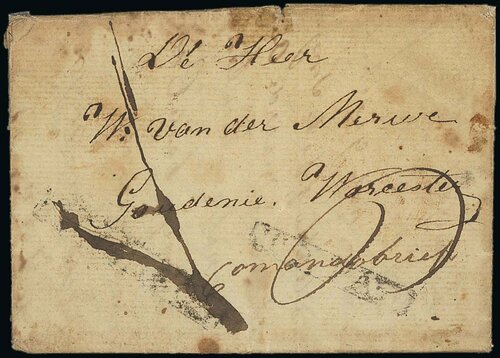 De Heer
W. van der Merwe
Goudenie. Worcester
Comandobrief